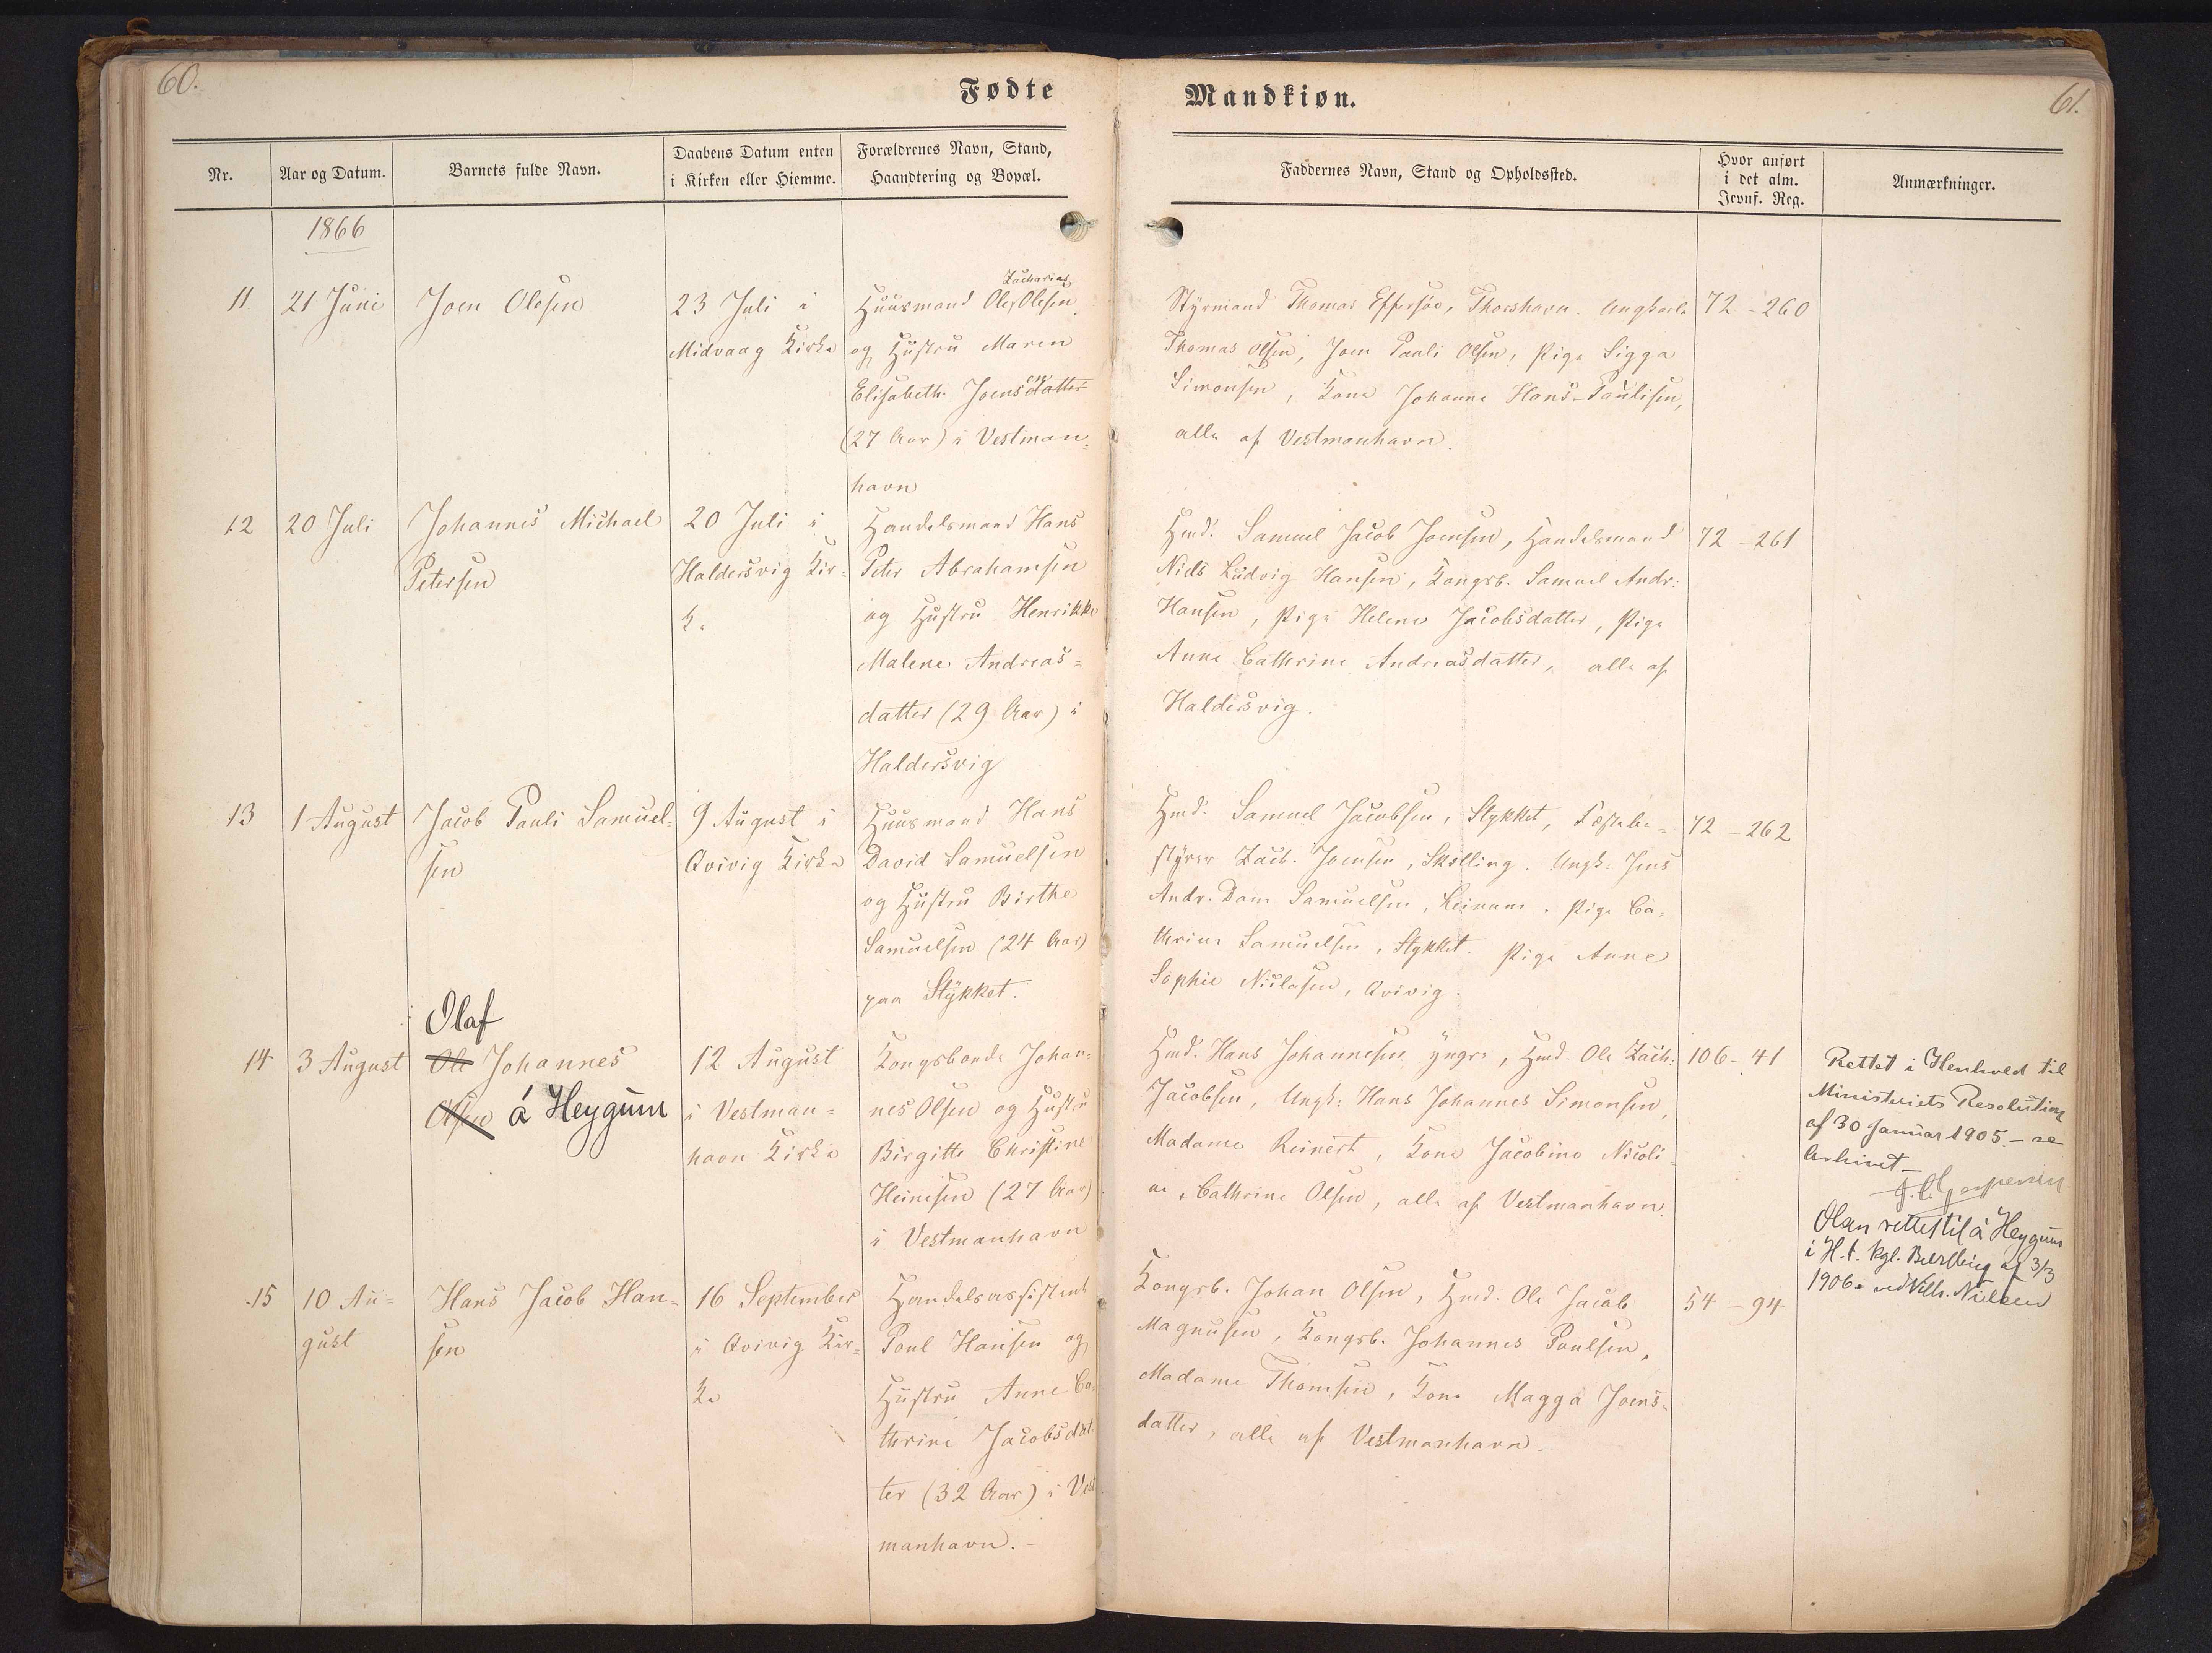 60.
Fødte
Nr.
Aar og Datum.
Barnets fulde Navn.
Daabens Datum enten
i Kirken eller Hiemme.
Forældrenes Navn, Stand,
Haandtering og Bopæl.
1866
11.
21 Juni
Joen Olesen
23 Juli i
Midvaag Kirke
Zacharias
Huusmand Ole Olesen
og Hustru Maren
Elisabeth Joensdatter
en
(27 Aar) i Vestman-
havn
12
20 Juli
Johannes Michael
Petersen
20 Juli i
Haldersvig Kir-
ke
Handelsmand Hans
Peter Abrahamsen
og Hustru Henrikke
Malene Andreas-
datter (29 Aar) i
Haldersvig
13
1 August
Jacob Pauli Samuel-
sen
9 August i
Qvivig Kirke
Huusmand Hans
David Samuelsen
og Hustru Birthe
Samuelsen (24 Aar)
paa Stykket.
14
3 August
Olaf
Ole Johannes
Olsen á Heygum
12 August
i Vestman-
havn Kirke
Kongsbonde Johan-
nes Olsen og Hustru
Birgitte Christine
Heinesen (27 Aar)
i Vestmanhavn
15
10 Au-
gust
Hans Jacob Han-
sen
16 September
i Qvivig Kir-
ke
Handelsassistent
Poul Hansen og
Hustru Anne Ca-
thrine Jacobsdat-
ter (32 Aar) i Vest
manhavn.-
Mandkiøn.
61.
Faddernes Navn, Stand og Opholdssted.
Hvor anført
i det alm.
Jevnf. Reg.
Anmærkninger.
Styrmand Thomas Effersøe, Thorshavn. Ungkarle
Thomas Olsen, Joen Pauli Olsen, Pige Sigga
Simonsen, Kone Johanne Hans-Paulisen,
alle af Vestmanhavn.
72 - 260
Hmd. Samuel Jacob Joensen, Handelsmand
Niels Ludvig Hansen, Kongsb. Samuel Andr.
Hansen, Pige Helene Jacobsdatter, Pige
Anne Cathrine Andreasdatter, alle af
Haldersvig.
72 - 261
Hmd. Samuel Jacobsen, Stykket, Fæstebe-
styrer Zach. Joensen, Skælling. Ungk. Jens
Andr. Dam Samuelsen, Leinum. Pige Ca-
thrine Samuelsen, Stykket. Pige Anne
Sophie Niclasen, Qvivig.
72 - 262
Hmd. Hans Johannesen yngre, Hmd. Ole Zach.
Jacobsen, Ungk: Hans Johannes Simonsen,
Madame Reinert, Kone Jacobine Nicoli-
ne Cathrine Olsen, alle af Vestmanhavn.
106 - 41
Rettet i Henhold til
Ministeriets Resolution
af 30 Januar 1905. - se
Arkivet -
Olsen rettet til á Heygum
i H. t. kgl. Bevilling af 3/3
1906. ved Vilh. Nielsen
Kongsb. Johan Olsen, Hmd. Ole Jacob
Magnusen, Kongsb. Johannes Poulsen,
Madame Thomsen, Kone Magga Joens-
datter, alle af Vestmanhavn.
54 - 94